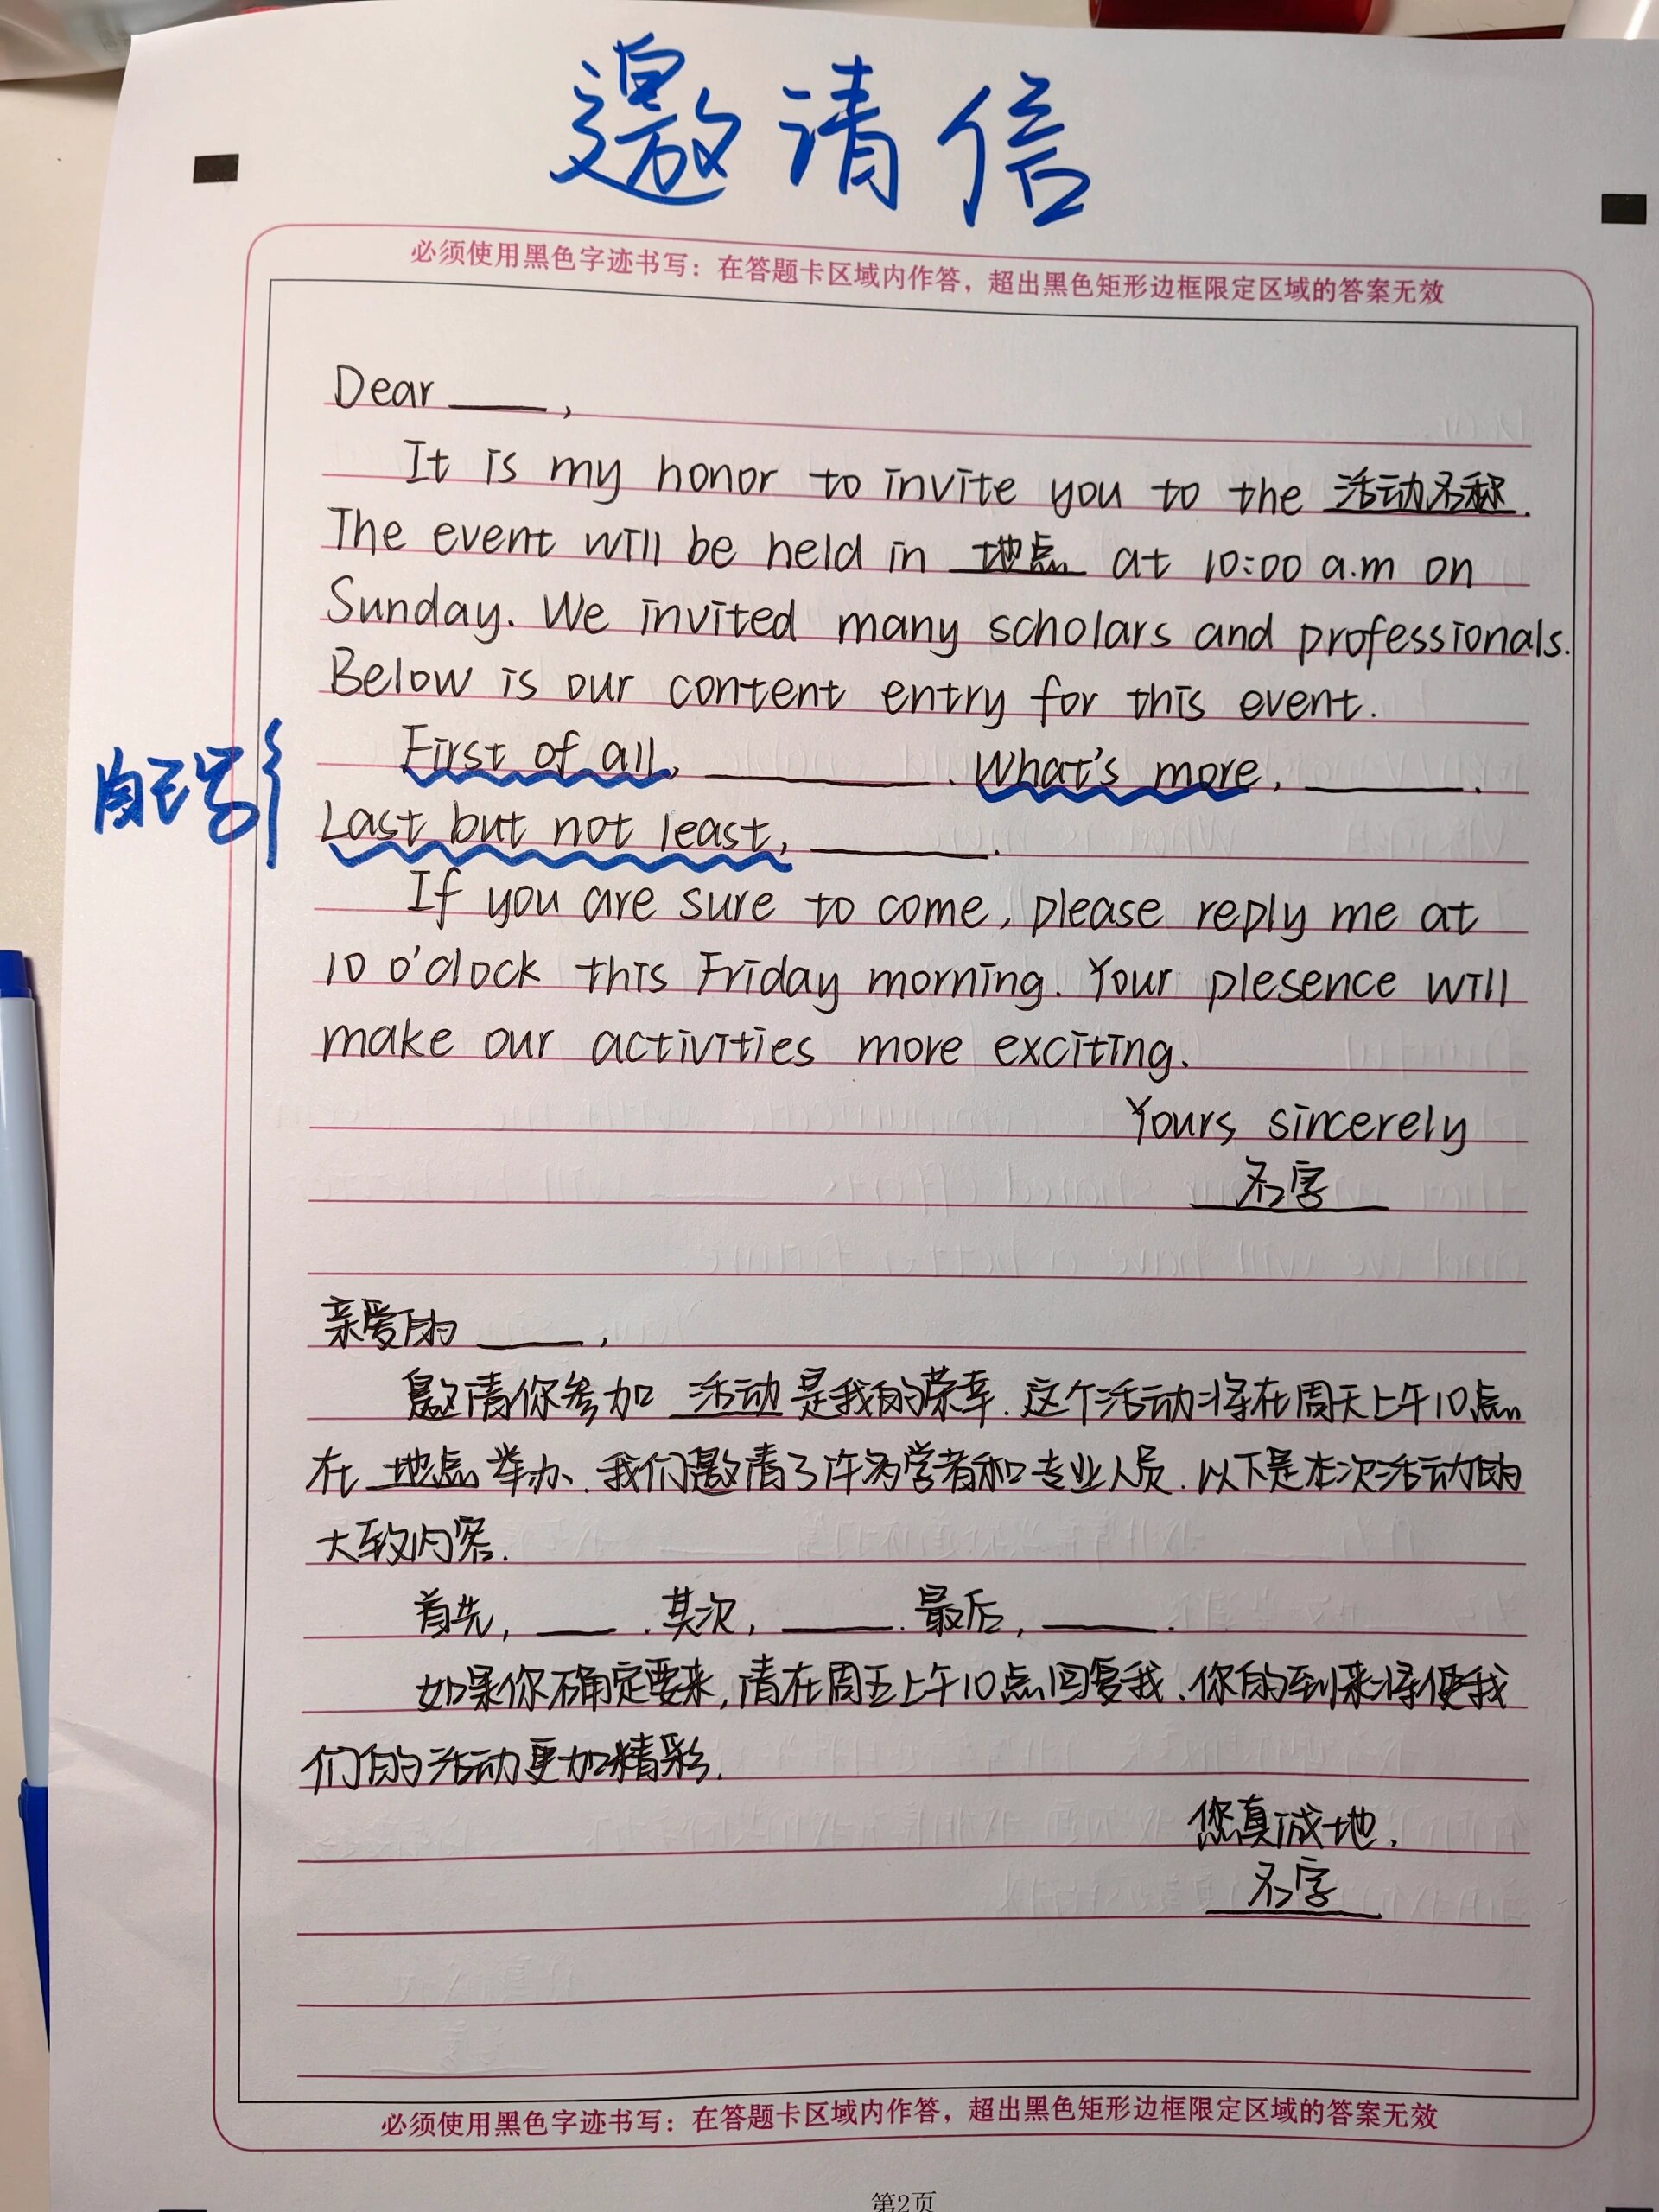 邀请信
必须使用黑色字迹书写：在答题卡区域内作答，超出黑色矩形边框限定区域的答案无效
Dear ____,
It is my honor to invite you to the 活动名称.
The event will be held in 地点 at 10:00 a.m on
Sunday. We invited many scholars and professionals.
Below is our content entry for this event.
自己写
First of all, ________. What's more, ______.
Last but not least, ______.
If you are sure to come, please reply me at
10 o'clock this Friday morning. Your plesence will
make our activities more exciting.
Yours, sincerely
名字
亲爱的 ____,
邀请你参加 活动 是我的荣幸. 这个活动将在周天上午10点
在 地点 举办. 我们邀请了许多学者和专业人员. 以下是本次活动的
大致内容.
首先, ___. 其次, ____. 最后, ____.
如果你确定要来, 请在周五上午10点回复我. 你的到来将使我
们的活动更加精彩.
您真诚地,
名字
必须使用黑色字迹书写：在答题卡区域内作答，超出黑色矩形边框限定区域的答案无效
第2页